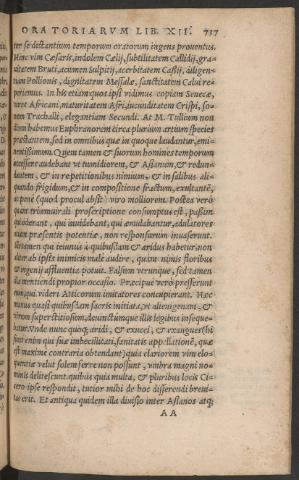 ORATORIARVM LIB. XII. 737
ter se distantium temporum oratorum ingens prouentus.
Hanc vim Cæsaris, indolem Cælij, subtilitatem Callidij, gra
uitatem Bruti, acumen Sulpitij, acerbitatem Cassij, diligen
tiam Pollionis, dignitatem Messalæ, sanctitatem Calui re
perimus. In his etiam quos ipsi vidimus copiam Senecæ,
vires Africani, maturitatem Afri, iucunditatem Crispi, so
num Trachalli, elegantiam Secundi. At M. Tullium non
illum habemus Euphranorem circa plurium artium species
præstantem, sed in omnibus quæ in quoque laudantur, emi
nentissimum. Quem tamen & suorum homines temporum
incessere audebant vt tumidiorem, & Asianum, & redun
dantem, & in repetitionibus nimium, & in salibus ali
quando frigidum, & in compositione fractum, exultantē,
ac penè (quod procul absit) viro molliorem. Postea verò
quàm triumuirali proscriptione consumptus est, passim
qui oderant, qui inuidebant, qui æmulabantur, adulatores
etiam præsentis potentiæ, non responsurum inuaserunt.
Ille tamen qui ieiunus à quibusdam & aridus habetur, non
aliter ab ipsis inimicis malè audire, quàm nimiis floribus
& ingenij affluentia potuit. Falsum verunque, sed tamen
illa mentiendi propior occasio. Præcipuè verò presserunt
eum, qui videri Atticorum imitatores concupierant. Hæc
manus quasi quibusdam sacris initiata, vt alienigenam, &
parum superstitiosum, deuinctúmque illis legibus inseque
batur. Vnde nunc quoq; aridi, & exucci, & exangues (hi
sunt enim qui suæ imbecillitati, sanitatis appellationē, quæ
est maximè contraria obtendant) quia clariorem vim elo
quentiæ velut solem ferre non possunt, vmbra magni no
minis delitescunt. quibus quia multa, & pluribus locis Ci-
cero ipse respondit, tutior mihi de hoc disserendi breui-
tas erit. Et antiqua quidem illa diuisio inter Asianos atq;
AA